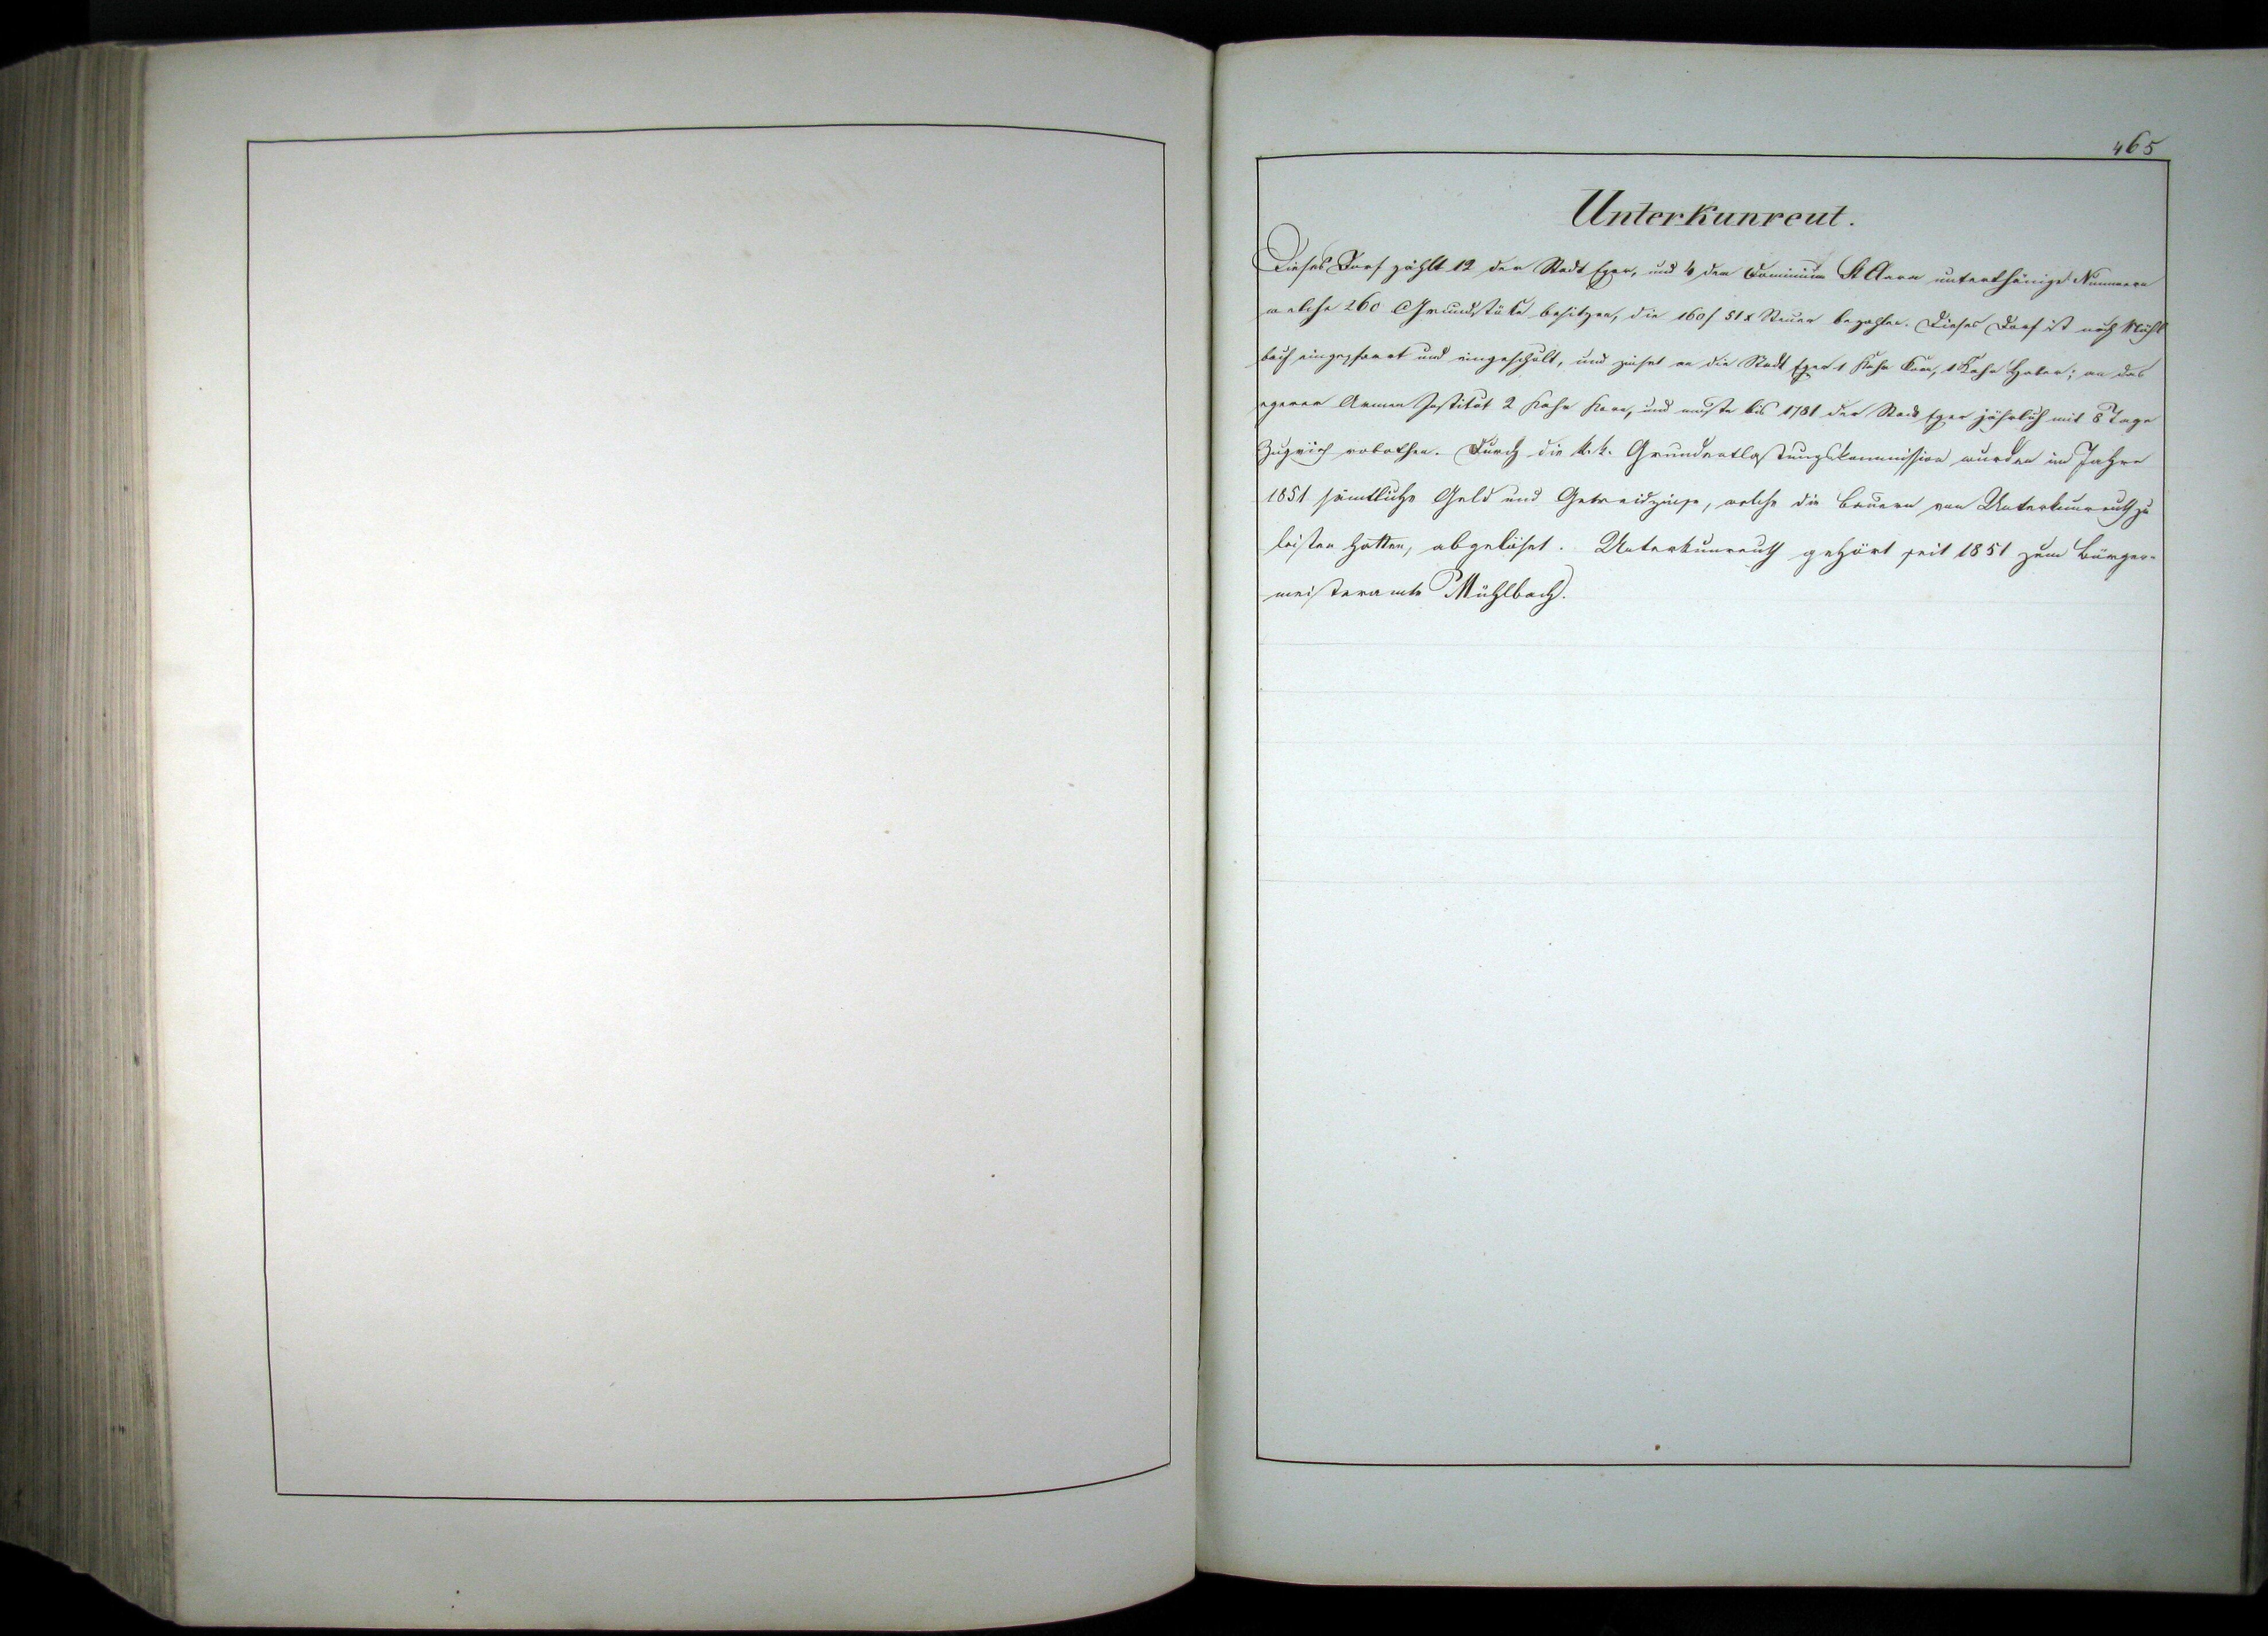 465
Unterkunreut.
Dieses Dorf zählt 12 der Stadt Eger, und 4 dem Dominium St Clara unterthänige Nummern
welche 260 Grundstüke besitzen, die 160 f 51 x Steuer bezahlen. Dieses Dorf ist nach Mühl
bach eingepfarrt und eingeschult, und zinset an die Stadt Eger 1 Kahr Korn, 1 Kahr Haber; an das
egerer Armen Institut 2 Kahr Korn, und mußte bis 1781 der Stadt Eger jährlich mit 8 Tage
Zugvieh robothen. Durch die k. k. Grundentlastungskommission wurden im Jahre
1851 sämtliche Geld und Getreidzinse, welche die Bauern von Unterkunreuth zu
leisten hatten, abgelöset. Unterkunreuth gehört seit 1851 zum Bürger-
meisteramte Mühlbach.